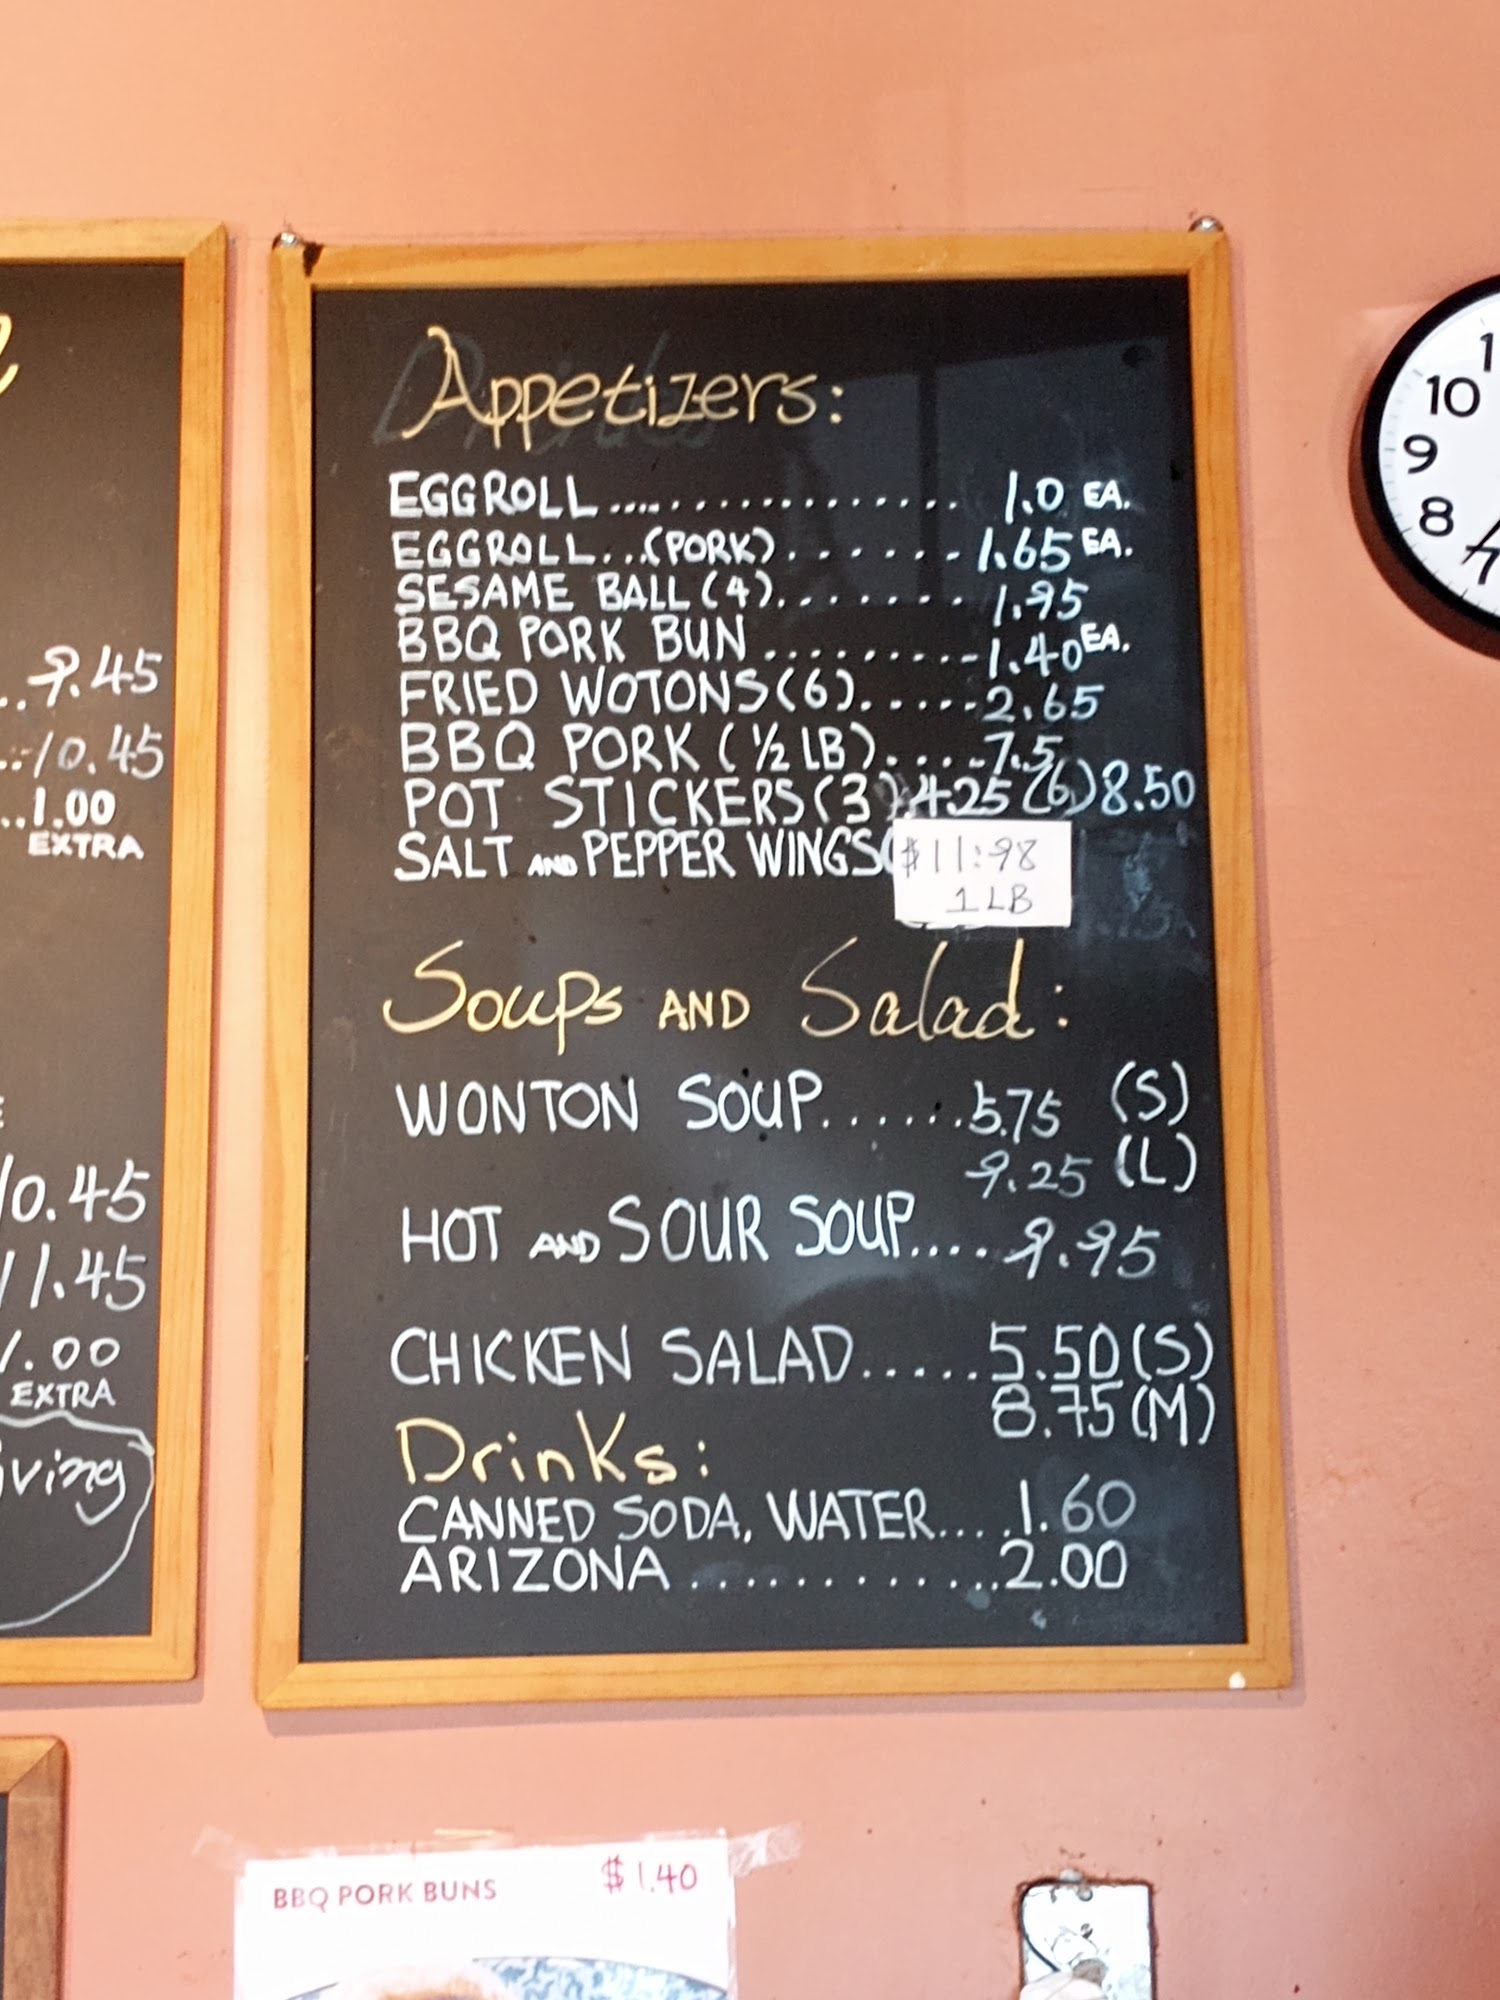 9.45
10.45
1.00
EXTRA
10.45
11.45
1.00
EXTRA
Appetizers:
EGGROLL.................. 1.0 EA.
EGGROLL...(PORK).......1.65 EA.
SESAME BALL (4)........ 1.95
BBQ PORK BUN .........1.40 EA.
FRIED WOTONS (6)......2.65
BBQ PORK (½ LB).....7.5
POT STICKERS (3) 4.25 (6) 8.50
SALT AND PEPPER WINGS( $11.98
1 LB
Soups AND Salad:
WONTON SOUP......5.75 (S)
9.25 (L)
HOT AND SOUR SOUP.... 9.95
CHICKEN SALAD.....5.50 (S)
8.75 (M)
Drinks:
CANNED SODA, WATER....1.60
ARIZONA ............2.00
10
9
8
7
BBQ PORK BUNS $1.40